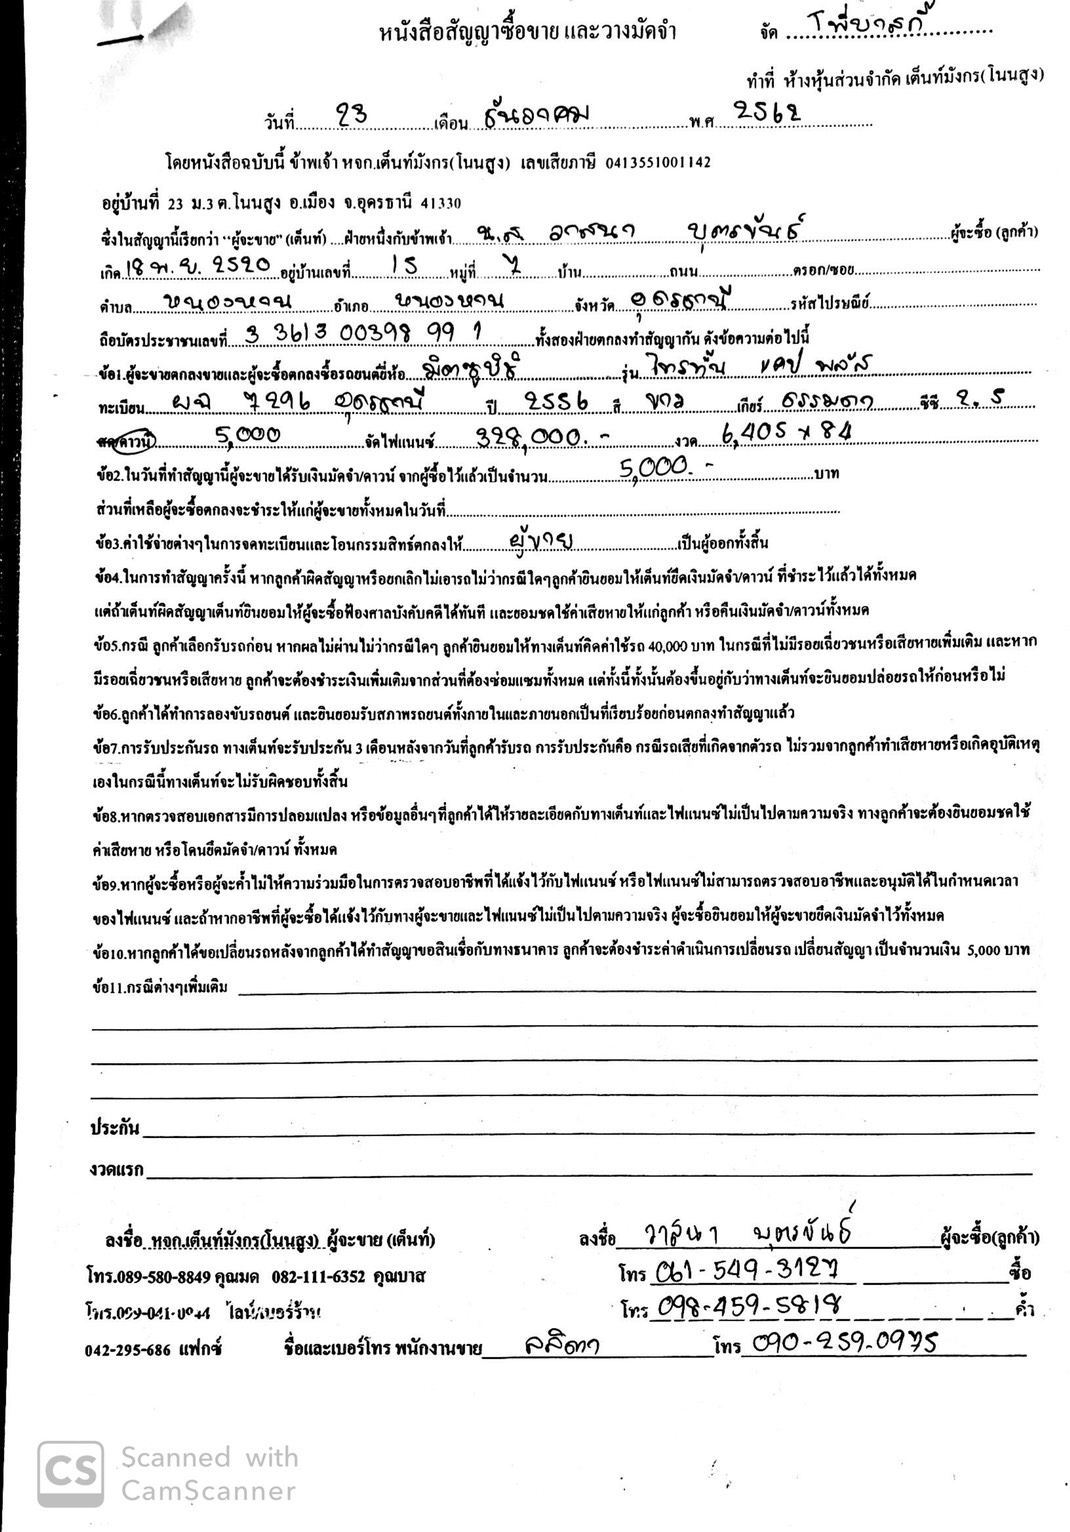 หนังสือสัญญาซื้อขาย และวางมัดจำ จัด
ทำที่ ห้างหุ้นส่วนจำกัด เต็นท์มังกร(โนนสูง)
วันที่ 23 เดือน ธันวาคม พ.ศ 2562
โดยหนังสือฉบับนี้ ข้าพเจ้า หจก.เต็นท์มังกร(โนนสูง) เลขเสียภาษี 0413551001142
อยู่บ้านที่ 23 ม.3 ต.โนนสูง อ.เมือง จ.อุดรธานี 41330
ซึ่งในสัญญานี้เรียกว่า "ผู้จะขาย" (เต็นท์) ....ฝ่ายหนึ่งกับข้าพเจ้า น.ส วาสนา บุตรขันธ์ ผู้จะซื้อ (ลูกค้า)
เกิด 18 พ.ย. 2520 อยู่บ้านเลขที่ 15 หมู่ที่ 7 บ้าน ถนน ตรอก/ซอย
ตำบล หนองหาน อำเภอ หนองหาน จังหวัด อุดรธานี รหัสไปรษณีย์
ถือบัตรประชาชนเลขที่ 3 3613 00398 99 1 ทั้งสองฝ่ายตกลงทำสัญญากัน ดังข้อความต่อไปนี้
ข้อ1.ผู้จะขายตกลงขายและผู้จะซื้อตกลงซื้อรถยนต์ยี่ห้อ มิตซูบิชิ รุ่น ไทรทัน แคป พลัส
ทะเบียน ผฉ 7296 อุดรธานี ปี 2556 สี ขาว เกียร์ ธรรมดา ซีซี 2.5
สด/ดาวน์ 5,000 จัดไฟแนนซ์ 328,000.- งวด 6,405 x 84
ข้อ2.ในวันที่ทำสัญญานี้ผู้จะขายได้รับเงินมัดจำ/ดาวน์ จากผู้ซื้อไว้แล้วเป็นจำนวน 5,000.- บาท
ส่วนที่เหลือผู้จะซื้อตกลงจะชำระให้แก่ผู้จะขายทั้งหมดในวันที่
ข้อ3.ค่าใช้จ่ายต่างๆในการจดทะเบียนและโอนกรรมสิทธ์ตกลงให้ ผู้ขาย เป็นผู้ออกทั้งสิ้น
ข้อ4.ในการทำสัญญาครั้งนี้ หากลูกค้าผิดสัญญาหรือยกเลิกไม่เอารถไม่ว่ากรณีใดๆลูกค้ายินยอมให้เต็นท์ยึดเงินมัดจำ/ดาวน์ ที่ชำระไว้แล้วได้ทั้งหมด
แต่ถ้าเต็นท์ผิดสัญญาเต็นท์ยินยอมให้ผู้จะซื้อฟ้องศาลบังคับคดีได้ทันที และยอมชดใช้ค่าเสียหายให้แก่ลูกค้า หรือคืนเงินมัดจำ/ดาวน์ทั้งหมด
ข้อ5.กรณี ลูกค้าเลือกรับรถก่อน หากผลไม่ผ่านไม่ว่ากรณีใดๆ ลูกค้ายินยอมให้ทางเต็นท์คิดค่าใช้รถ 40,000 บาท ในกรณีที่ไม่มีรอยเฉี่ยวชนหรือเสียหายเพิ่มเติม และหาก
มีรอยเฉี่ยวชนหรือเสียหาย ลูกค้าจะต้องชำระเงินเพิ่มเติมจากส่วนที่ต้องซ่อมแซมทั้งหมด แต่ทั้งนี้ทั้งนั้นต้องขึ้นอยู่กับว่าทางเต็นท์จะยินยอมปล่อยรถให้ก่อนหรือไม่
ข้อ6.ลูกค้าได้ทำการลองขับรถยนต์ และยินยอมรับสภาพรถยนต์ทั้งภายในและภายนอกเป็นที่เรียบร้อยก่อนตกลงทำสัญญาแล้ว
ข้อ7.การรับประกันรถ ทางเต็นท์จะรับประกัน 3 เดือนหลังจากวันที่ลูกค้ารับรถ การรับประกันคือ กรณีรถเสียที่เกิดจากตัวรถ ไม่รวมจากลูกค้าทำเสียหายหรือเกิดอุบัติเหตุ
เองในกรณีนี้ทางเต็นท์จะไม่รับผิดชอบทั้งสิ้น
ข้อ8.หากตรวจสอบเอกสารมีการปลอมแปลง หรือข้อมูลอื่นๆที่ลูกค้าได้ให้รายละเอียดกับทางเต็นท์และไฟแนนซ์ไม่เป็นไปตามความจริง ทางลูกค้าจะต้องยินยอมชดใช้
ค่าเสียหาย หรือโดนยึดมัดจำ/ดาวน์ ทั้งหมด
ข้อ9.หากผู้จะซื้อหรือผู้จะค้ำไม่ให้ความร่วมมือในการตรวจสอบอาชีพที่ได้แจ้งไว้กับไฟแนนซ์ หรือไฟแนนซ์ไม่สามารถตรวจสอบอาชีพและอนุมัติได้ในกำหนดเวลา
ของไฟแนนซ์ และถ้าหากอาชีพที่ผู้จะซื้อได้แจ้งไว้กับทางผู้จะขายและไฟแนนซ์ไม่เป็นไปตามความจริง ผู้จะซื้อยินยอมให้ผู้จะขายยึดเงินมัดจำไว้ทั้งหมด
ข้อ10.หากลูกค้าได้ขอเปลี่ยนรถหลังจากลูกค้าได้ทำสัญญาขอสินเชื่อกับทางธนาคาร ลูกค้าจะต้องชำระค่าดำเนินการเปลี่ยนรถ เปลี่ยนสัญญา เป็นจำนวนเงิน 5,000 บาท
ข้อ11.กรณีต่างๆเพิ่มเติม
ประกัน
งวดแรก
ลงชื่อ หจก.เต็นท์มังกร(โนนสูง) ผู้จะขาย (เต็นท์) ลงชื่อ วาสนา บุตรขันธ์ ผู้จะซื้อ(ลูกค้า)
โทร.089-580-8849 คุณมด 082-111-6352 คุณบาส โทร 061-549-3127 ซื้อ
ไลน์/เบอร์ร้าน โทร 098-459-5818 ค้ำ
042-295-686 แฟกซ์ ชื่อและเบอร์โทร พนักงานขาย ลลิตา โทร 090-259-0975
CS Scanned with
CamScanner